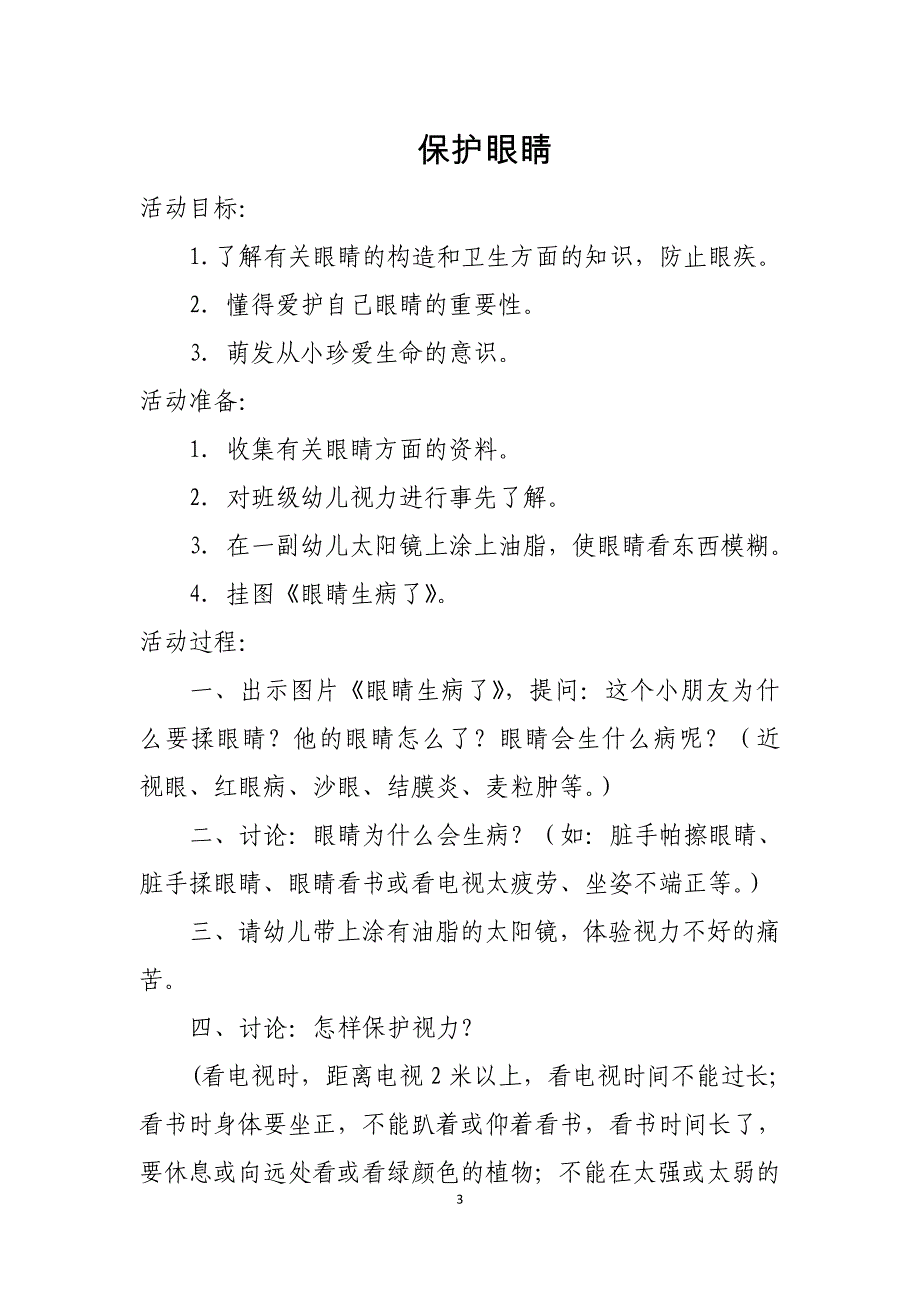 保护眼睛
活动目标：
1.了解有关眼睛的构造和卫生方面的知识，防止眼疾。
2. 懂得爱护自己眼睛的重要性。
3. 萌发从小珍爱生命的意识。
活动准备：
1. 收集有关眼睛方面的资料。
2. 对班级幼儿视力进行事先了解。
3. 在一副幼儿太阳镜上涂上油脂，使眼睛看东西模糊。
4. 挂图《眼睛生病了》。
活动过程：
一、出示图片《眼睛生病了》，提问：这个小朋友为什
么要揉眼睛？他的眼睛怎么了？眼睛会生什么病呢？（近
视眼、红眼病、沙眼、结膜炎、麦粒肿等。）
二、讨论：眼睛为什么会生病？（如：脏手帕擦眼睛、
脏手揉眼睛、眼睛看书或看电视太疲劳、坐姿不端正等。）
三、请幼儿带上涂有油脂的太阳镜，体验视力不好的痛
苦。
四、讨论：怎样保护视力？
(看电视时，距离电视 2 米以上，看电视时间不能过长；
看书时身体要坐正，不能趴着或仰着看书，看书时间长了，
要休息或向远处看或看绿颜色的植物；不能在太强或太弱的
3